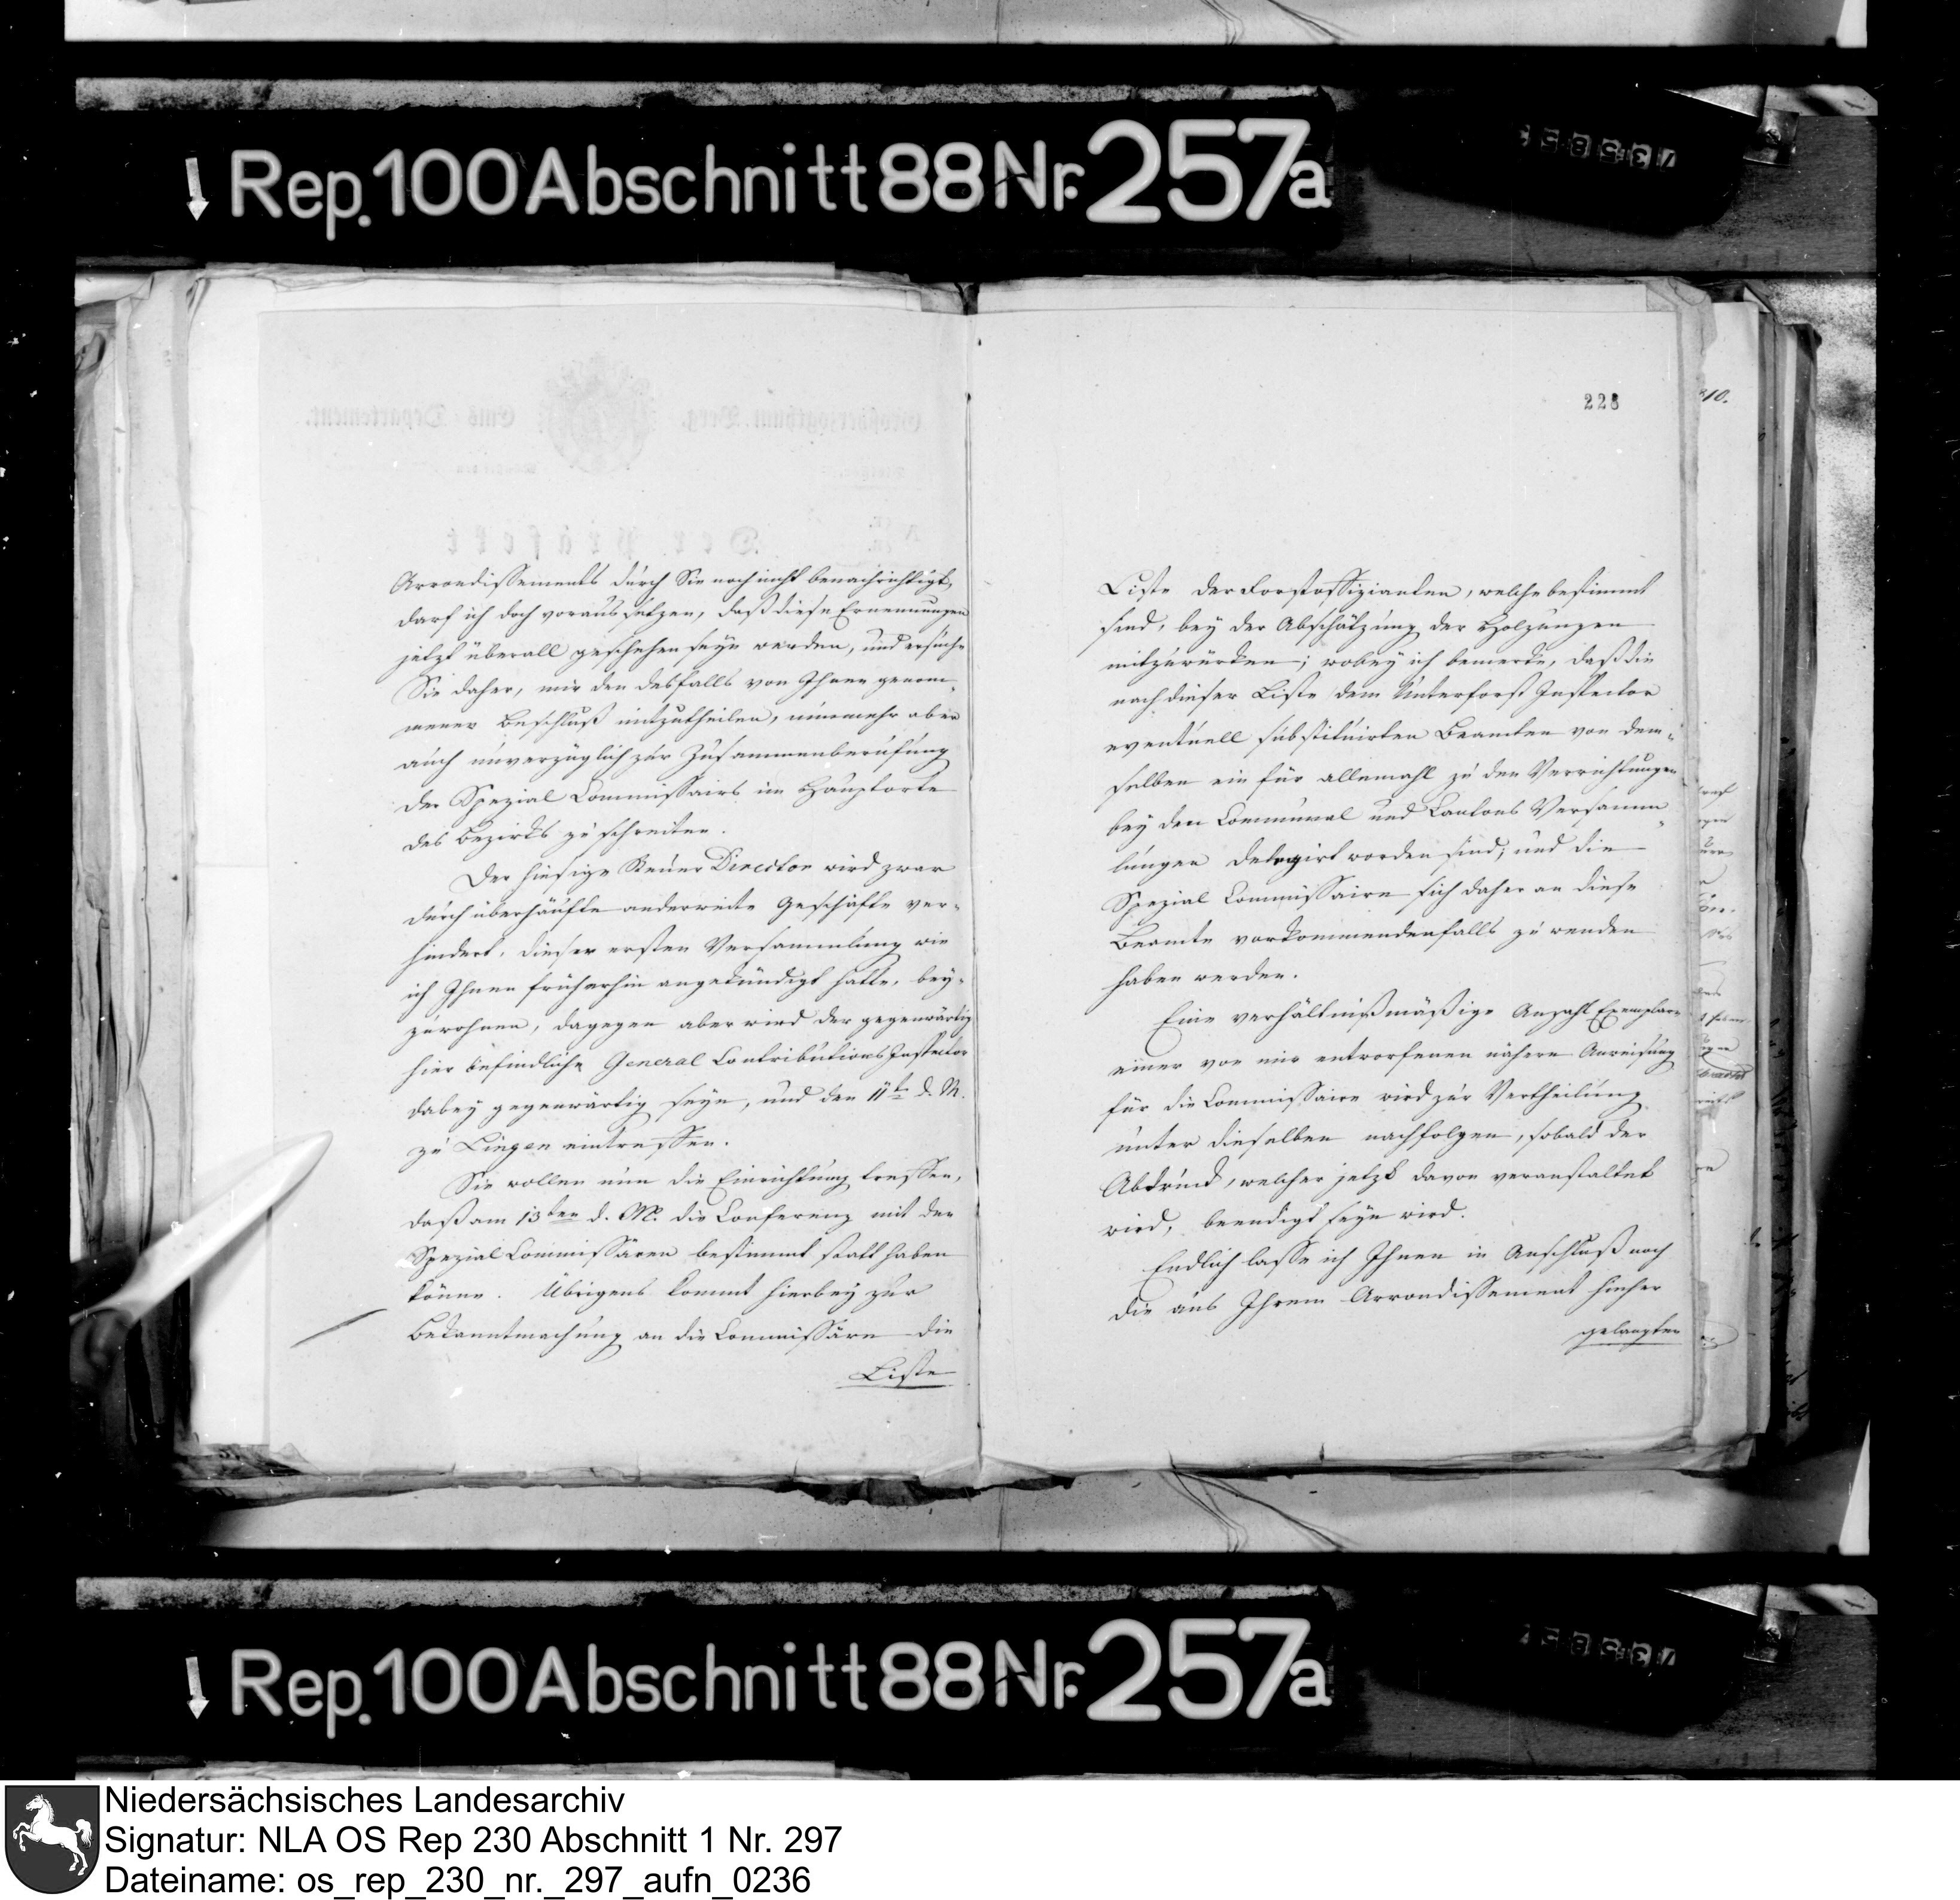 Rep. 100 Abschnitt 88 Nr. 257a
Arrondissements durch Sie noch nicht benachrichtigt,
darf ich doch voraus setzen, daß diese Ernennungen
jetzt überall geschehen seyn werden, und ersuche
Sie daher, mir den desfalls von Ihnen genom-
menen Beschluß mitzutheilen, nunmehr aber
auch unverzüglich zur Zusammenberufung
der Spezial Commissairs im Hauptorte
des Bezirks zu schreiten.
Der hiesige Steuer Director wird zwar
durch überhäufte anderweite Geschäfte ver-
hindert, dieser ersten Versammlung wie
ich Ihnen früherhin angekündigt hatte, bey-
zuwohnen, dagegen aber wird der gegenwärtig
hier befindliche General Contributions Inspector
dabey gegenwärtig seyn, und den 11te d. M.
zu Lingen eintreffen.
Sie wollen nun die Einrichtung treffen,
daß am 13ten d. M. die Conferenz mit den
Spezial Commissären bestimmt statt haben
könne. Übrigens kommt hierbey zur
Bekanntmachung an die Commissäre die
Liste
228
Liste der Forstoffizianten, welche bestimmt
sind, bey der Abschätzung der Holzungen
mitzuwürken; wobey ich bemerke, daß die
nach dieser Liste dem Unterforst Inspector
eventuell substituirten Beamten von dem-
selben ein für allemahl zu den Verrichtungen
bey den Communal und Cantons Versamm-
lungen delegirt worden sind; und die
Spezial Commissaire sich daher an diese
Beamte vorkommendenfalls zu wenden
haben werden.
Eine verhältnißmäßige Anzahl Exemplare
einer von mir entworfenen nähern Anweisung
für die Commissaire wird zur Vertheilung
unter dieselben nachfolgen, sobald der
Abdruck, welcher jetzt davon veranstaltet
wird, beendigt seyn wird.
Endlich lasse ich Ihnen in Anschluß noch
die aus Ihrem Arrondissement hieher
gelangten
Rep. 100 Abschnitt 88 Nr. 257a
Niedersächsisches Landesarchiv
Signatur: NLA OS Rep 230 Abschnitt 1 Nr. 297
Dateiname: os_rep_230_nr._297_aufn_0236